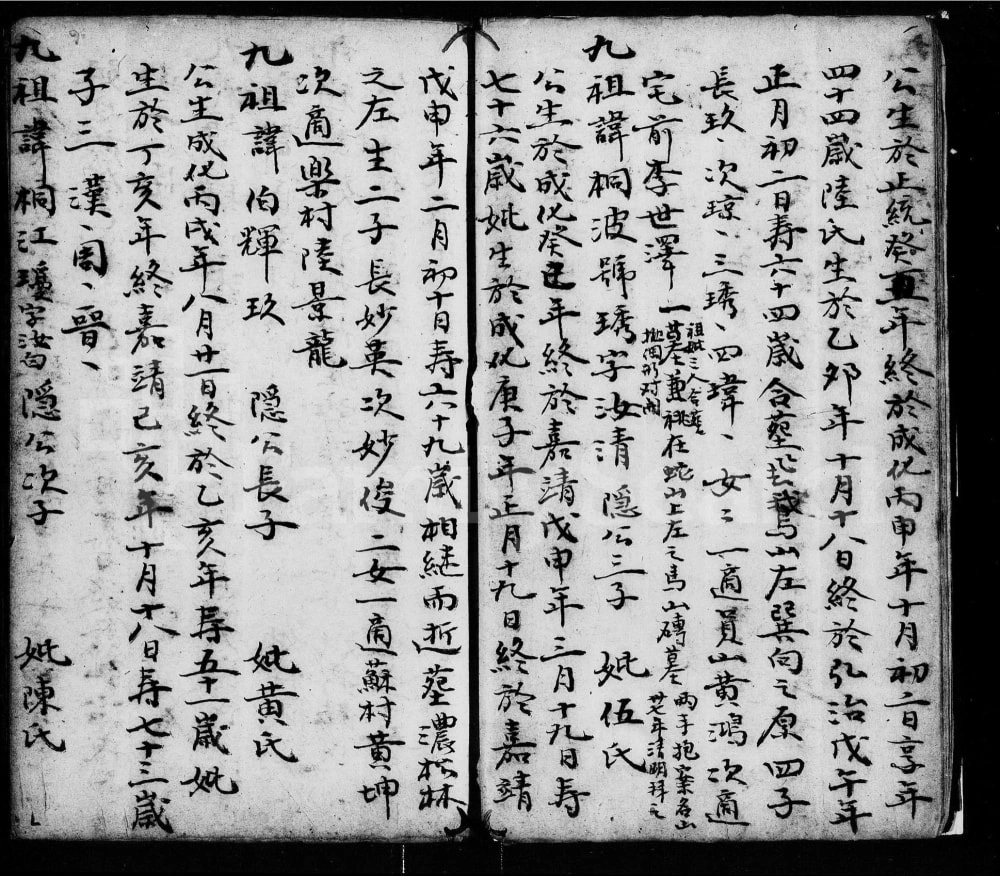 公生於正統癸丑年終於成化丙申年十月初二日享年
四十四歲陸氏生於乙卯年十月十八日終於弘治戊午年
正月初二日壽六十四歲合葬 鵞山左巽向之原四子
長玖、次琼、三琇、四瑋、女二一適員山黃鴻次適
宅前李世澤一
祖妣三人合葬
在蛇山上左之馬山磚墓
兩手抱案名山
廿七年清明拜之
九祖諱桐波號琇字汝清 隱公三子 妣伍氏
公生於成化癸巳年終於嘉靖戊申年三月十九日壽
七十六歲妣生於成化庚子年正月十九日終於嘉靖
戊申年二月初十日壽六十九歲相繼而逝葬濃松林
之左生二子長妙英次妙俊二女一適蘇村黃坤
次適樂村陸景龍
九祖諱伯輝玖 隱公長子 妣黃氏
公生成化丙戌年八月廿一日終於乙亥年壽五十一歲妣
生於丁亥年終嘉靖己亥年十月十八日壽七十三歲
子三 漢、周、晉、
九祖諱桐江瓊字汝白隱公次子 妣陳氏